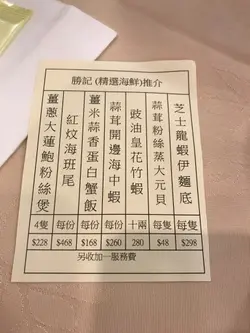 勝記 (精選海鮮)推介
芝士龍蝦伊麵底
每隻
$298
蒜茸粉絲蒸大元貝
每隻
$48
豉油皇花竹蝦
十兩
280
蒜茸開邊海中蝦
每份
$260
薑米蒜香蛋白蟹飯
每份
$168
紅炆海班尾
每份
$468
薑蔥大蓮鮑粉絲煲
4隻
$228
另收加一服務費